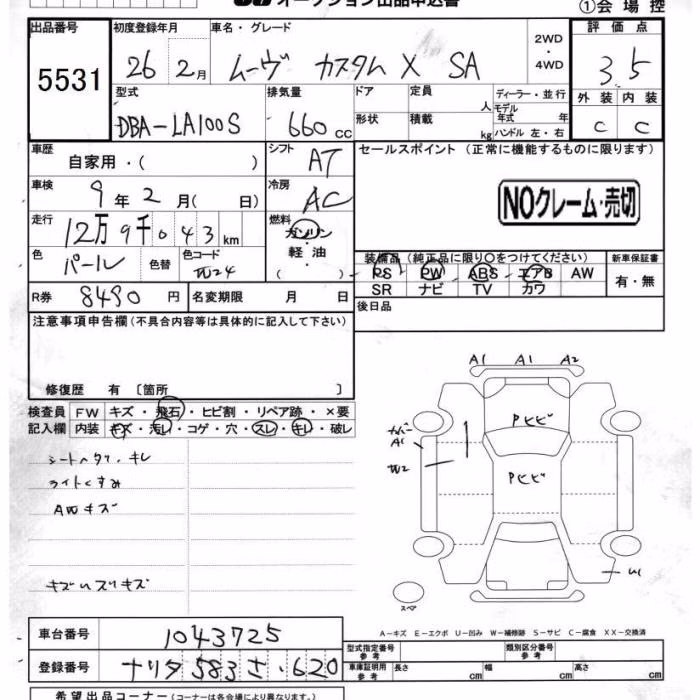 オークション出品申込書
①会場控
出品番号 初度登録年月 車名・グレード 2WD ・ 4WD 評価点
5531 26 2月 ムーヴ カスタム X SA 3.5
型式 排気量 ドア 定員 人 ディーラー・並行 外装 内装
DBA-LA100S 660cc 形状 積載 kg モデル年式 年 ハンドル 左・右 C C
車歴 自家用・( ) シフト AT セールスポイント (正常に機能するものに限ります)
車検 9年2月( 日) 冷房 AC
NOクレーム・売切
走行 12万9千043km 燃料 ガソリン・軽油 ( )
色 パール 色替 色コード W24
装備品 (純正品に限り○をつけてください) 新車保証書
PS PW ABS エアB AW 有・無
SR ナビ TV カワ
R券 8490円 名変期限 月 日 後日品
注意事項申告欄(不具合内容等は具体的に記入して下さい)
修復歴 有 〔箇所 〕
検査員 FW キズ・飛石・ヒビ割・リペア跡・×要
記入欄 内装 キズ・汚レ・コゲ・穴・スレ・キレ・破レ
ライトくすみ
AWキズ
A1 A1 A2
Pヒビ
カバー
A1
W2
Pヒビ
U1
スペア
A-キズ E-エクボ U-凹み W-補修跡 S-サビ C-腐食 XX-交換済
車台番号 1043725
型式指定番号 参考 類別区分番号 参考
登録番号 ナリタ583さ・620
車庫証明用 参考 長さ cm 幅 cm 高さ cm
希望出品コーナー(コーナーは各会場により異なります。)